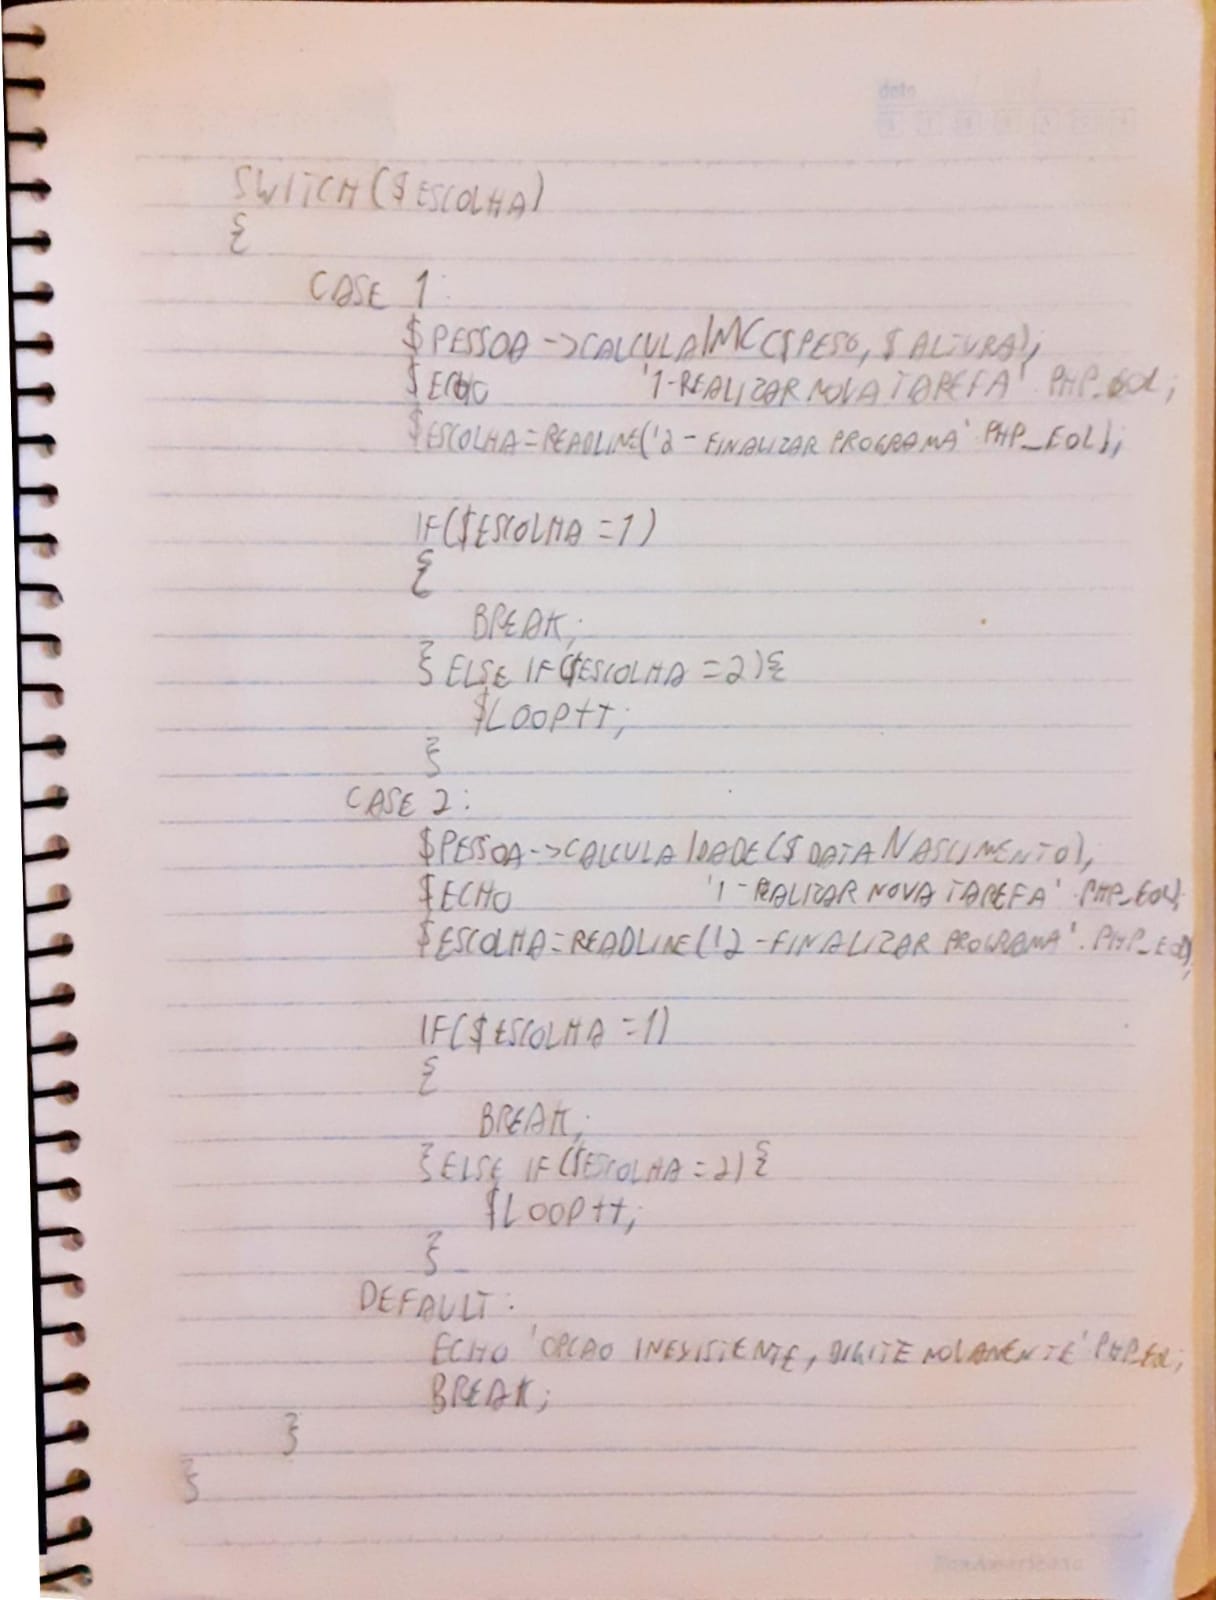 date
SWITCH($ESCOLHA)
{
CASE 1:
$PESSOA->CALCULAIMC($PESO, $ALTURA);
$ECHO '1-REALIZAR NOVA TAREFA'. PHP_EOL;
$ESCOLHA=READLINE('2-FINALIZAR PROGRAMA' PHP_EOL);
IF($ESCOLHA=1)
{
BREAK;
} ELSE IF($ESCOLHA=2){
$LOOP++;
}
CASE 2:
$PESSOA->CALCULAIDADE($DATANASCIMENTO);
$ECHO '1-REALIZAR NOVA TAREFA'. PHP_EOL;
$ESCOLHA=READLINE('2-FINALIZAR PROGRAMA'. PHP_EOL);
IF($ESCOLHA=1)
{
BREAK;
}ELSE IF($ESCOLHA=2){
$LOOP++;
}
DEFAULT:
ECHO 'OPCAO INEXISTENTE, DIGITE NOVAMENTE' PHP_EOL;
BREAK;
}
}